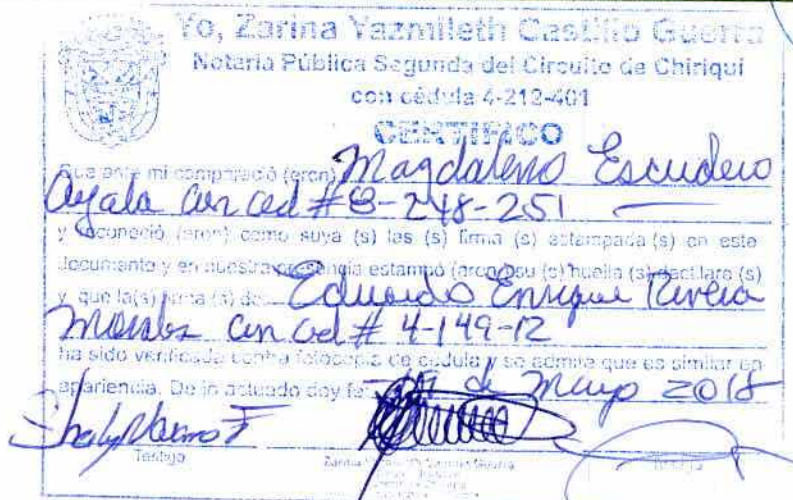 Yo, Zarina Yazmileth Castillo Guerra
Notaria Pública Segunda del Circuito de Chiriquí
con cédula 4-212-401
CERTIFICO
Que ante mi compareció (eron) Magdaleno Escudero
Ayala con ced # 8-248-251
y reconoció (eron) como suya (s) las (s) firma (s) estampada (s) en este
documento y en nuestra presencia estampó (aron) su (s) huella (s) dactilare (s)
y que la(s) firma (s) de Eduardo Enrique Rivera
Morales con ced # 4-149-12
ha sido verificada contra fotocopia de cédula y se admite que es similar en
apariencia. De lo actuado doy fe de Mayo 2018
Testigo
Testigo